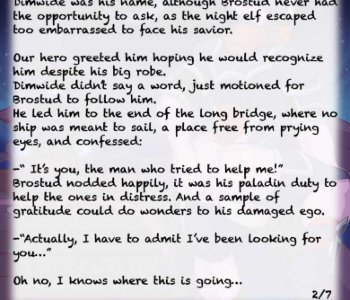 Dimwide was his name, although Brostud never had
the opportunity to ask, as the night elf escaped
too embarrassed to face his savior.
Our hero greeted him hoping he would recognize
him despite his big robe.
Dimwide didn't say a word, just motioned for
Brostud to follow him.
He led him to the end of the long bridge, where no
ship was meant to sail, a place free from prying
eyes, and confessed:
-“ It’s you, the man who tried to help me!”
Brostud nodded happily, it was his paladin duty to
help the ones in distress. And a sample of
gratitude could do wonders to his damaged ego.
-“Actually, I have to admit I’ve been looking for
you...”
Oh no, I knows where this is going...
2/7